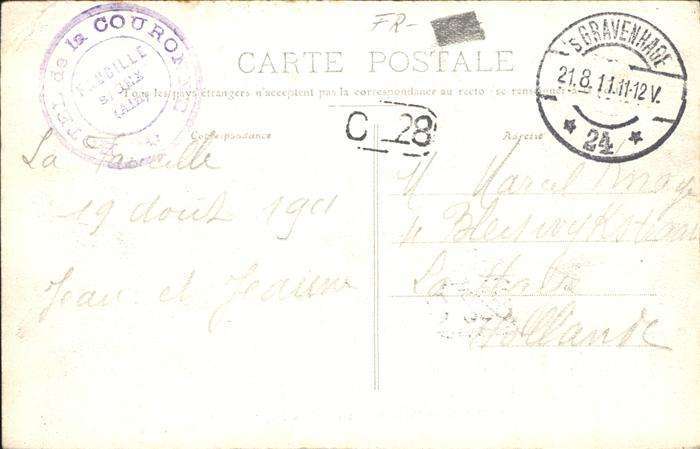 FR-
HOTEL de la COURONNE
FAUCILLE
(AIN)
CARTE POSTALE
Tous les pays étrangers n'acceptent pas la correspondance au recto
's GRAVENHAGE
21.8.11.11-12 V.
* 24 *
C 28
Correspondance
Adresse
La Faucille
19 août 1911
Jean et Jeanne
M Marcel
La Haye
Hollande